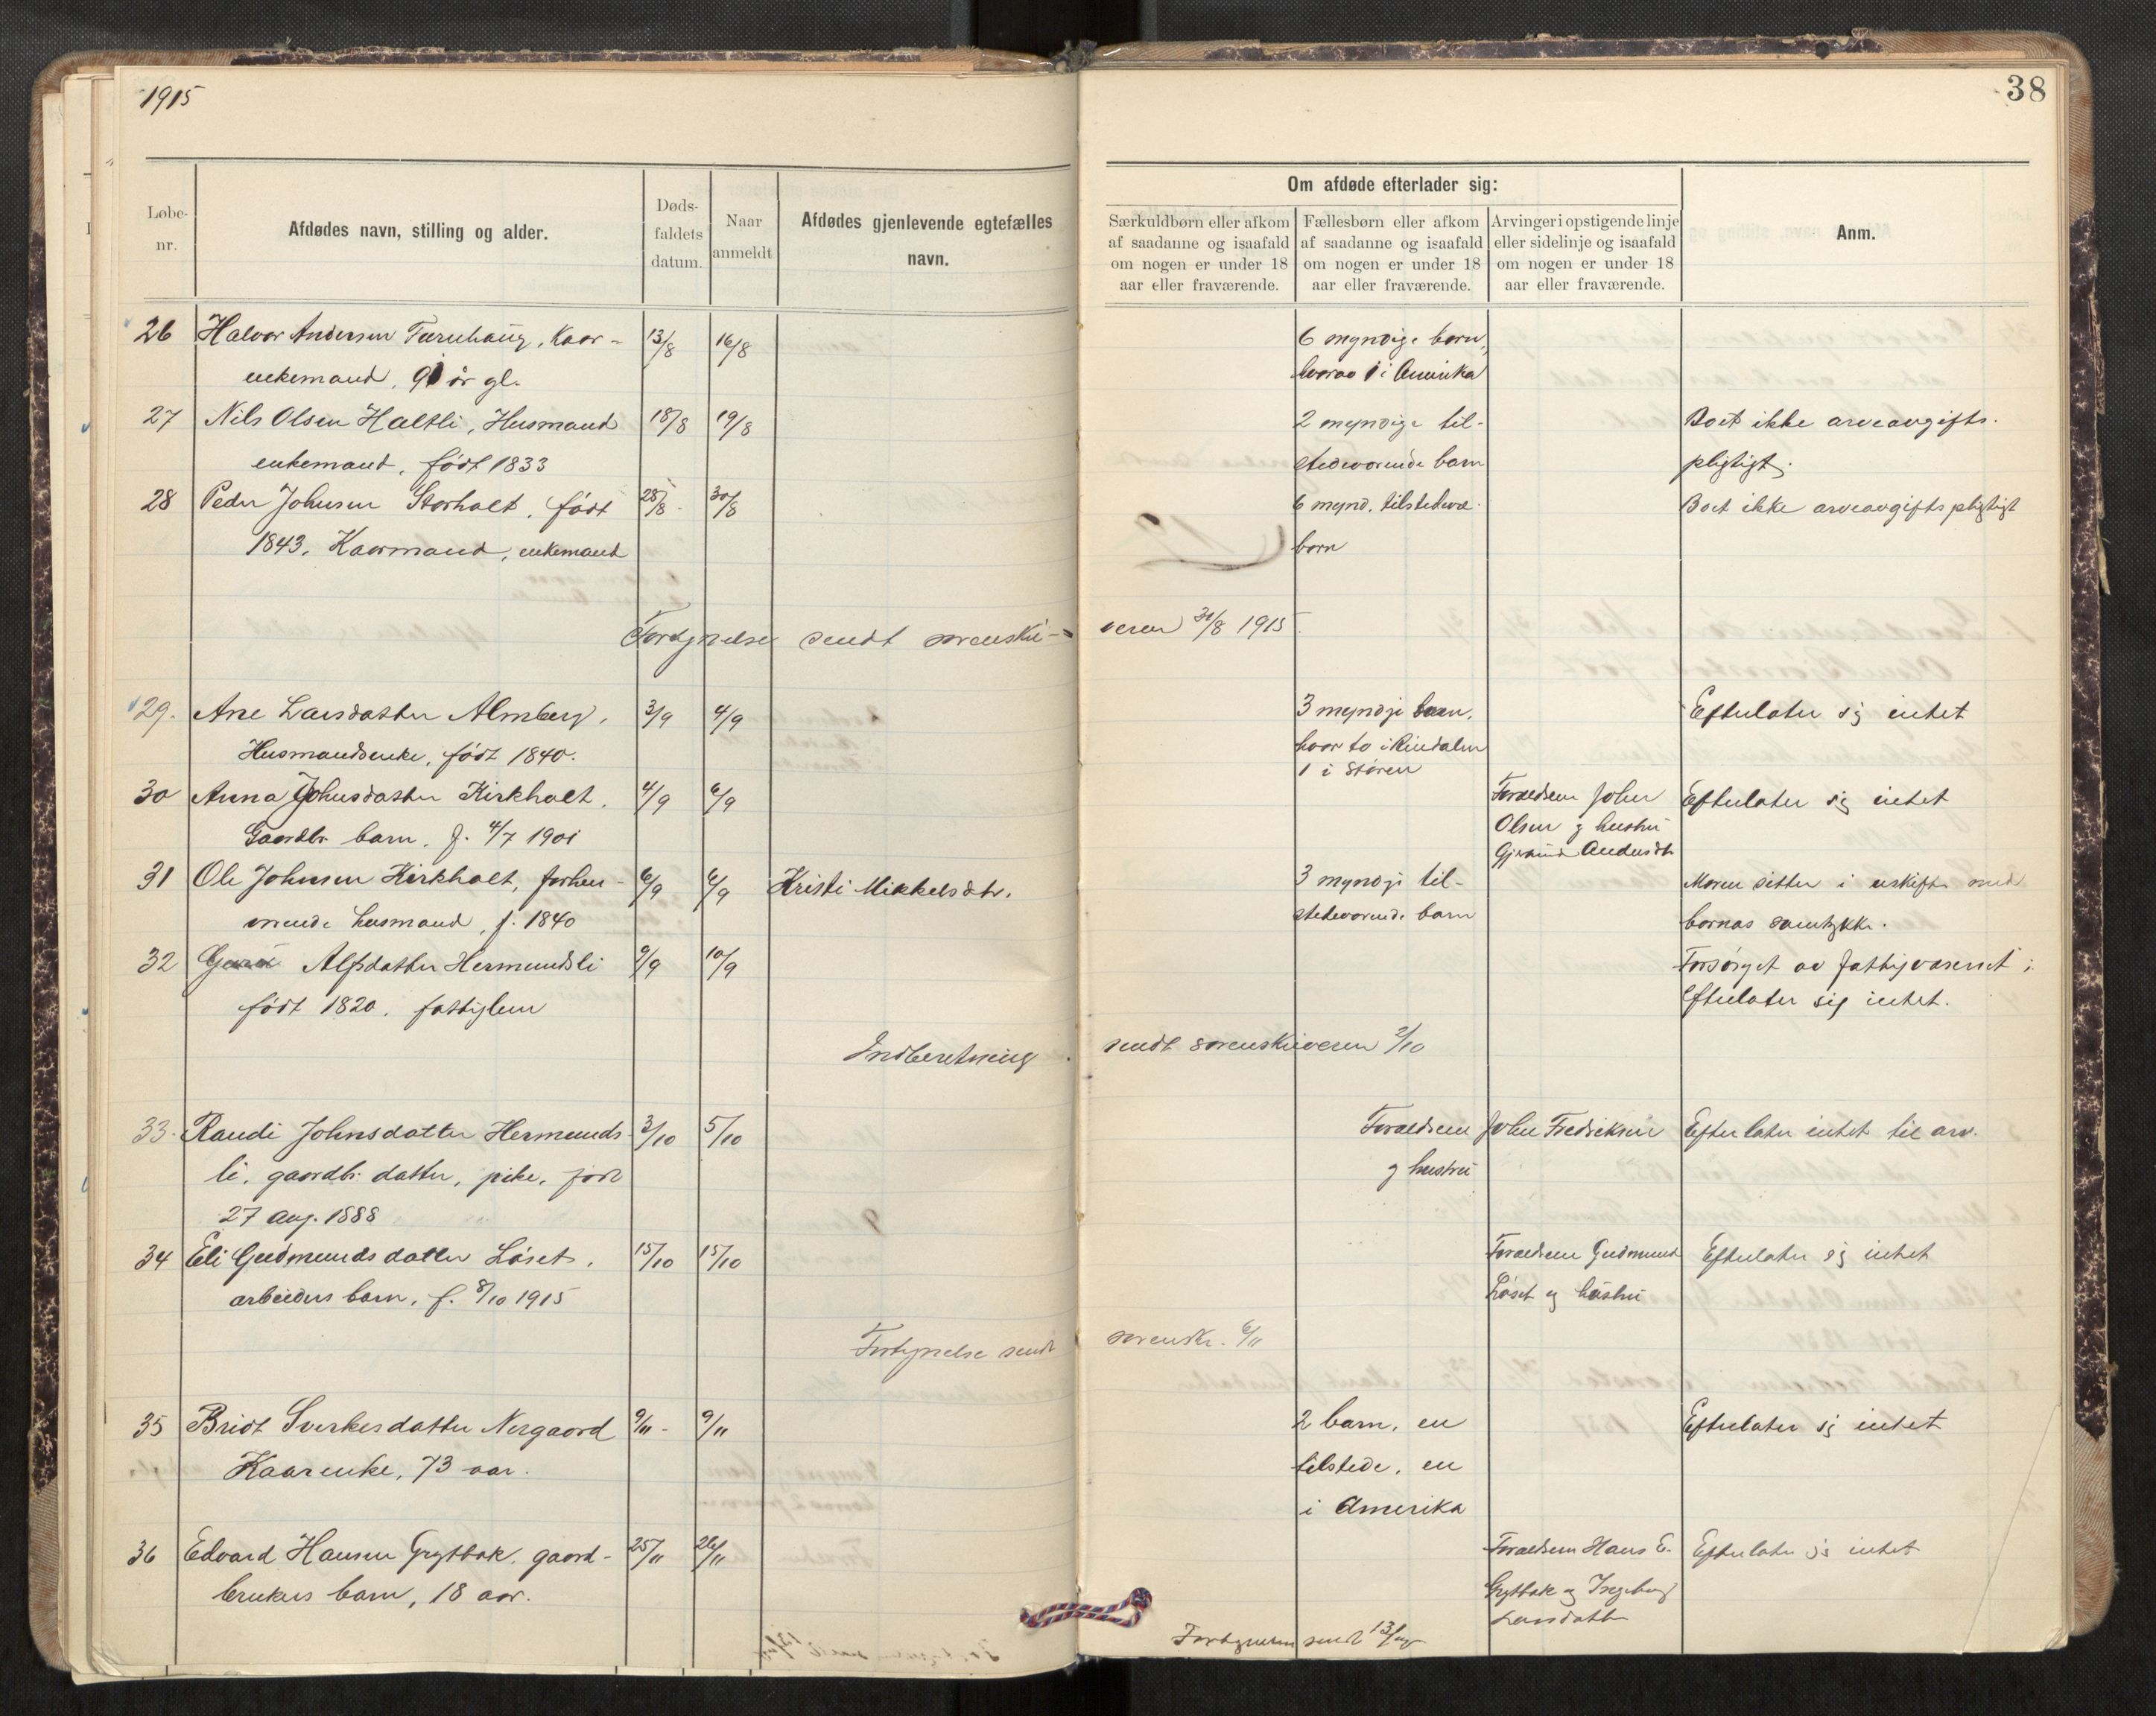 1915
38
Løbe-
nr.
Afdødes navn, stilling og alder.
Døds-
faldets
datum.
Naar
anmeldt
Afdødes gjenlevende egtefælles
navn.
Om afdøde efterlader sig:
Særkuldbørn eller afkom
af saadanne og isaafald
om nogen er under 18
aar eller fraværende.
Fællesbørn eller afkom
af saadanne og isaafald
om nogen er under 18
aar eller fraværende.
Arvinger i opstigende linje
eller sidelinje og isaafald
om nogen er under 18
aar eller fraværende.
Anm.
26 Halvor Andersen Tøruhaug, Kaar- 13/8 16/8 6 myndige børn,
enkemand, 91 år gl. hvorav 1 i Amerika
27 Nils Olsen Haltli, Husmand 18/8 19/8 2 myndige til- Boet ikke arveavgifts-
enkemand, født 1833 stedeværende barn pligtigt.
28 Peder Johnsen Storholt, født 28/8 30/8 6 mynd. tilstedevæ. Boet ikke arveavgiftspligtigt
1843, Kaarmand, enkemand born
Fortegnelse sendt sorenskri- veren 30/8 1915
29. Ane Larsdatter Almberg, 3/9 4/9 3 myndige barn, Efterlater sig intet
Husmandsenke, født 1840. hvor to i Rindalen
1 i Støren
30 Anna Johnsdatter Kirkholt, 4/9 6/9 Forældrene John Efterlater sig intet
Gaardbr. barn, f. 4/7 1901 Olsen og hustru
Gjertrud Andersdtr
31 Ole Johnsen Kirkholt, forhen- 6/9 6/9 Kristi Mikkelsdtr. 3 myndige til- Moren sitter i uskifte med
værende husmand, f. 1840 stedeværende barn bornas samtykke.
32 Guru Alfsdatter Hermundsli 9/9 10/9 Forsørget av fattigvæsenet;
født 1820, fattiglem efterlater sig intet.
Indberetning sendt sorenskriveren 2/10
33. Randi Johnsdatter Hermunds- 3/10 5/10 Forældrene John Fredriksen Efterlater intet til arv.
li, gaardbr. datter, pike, født og hustru
27 aug. 1888
34 Eli Gudmundsdatter Løset, 15/10 15/10 Forældrene Gudmund Efterlater sig intet
arbeiders barn, f. 8/10 1915 Løset og hustru
Fortegnelse sendt sorenskr. 6/11
35 Bridt Sverkesdatter Nergaard 9/11 9/11 2 barn, en Efterlater sig intet
Kaarenke, 73 aar. tilstede, en
i Amerika
36 Edvard Hansen Grytbak, gaard- 25/11 26/11 Forældrene Hans E. Efterlater sig intet
brukers barn, 18 aar. Grytbak og Ingeborg
Larsdatter
Fortegnelsen sendt